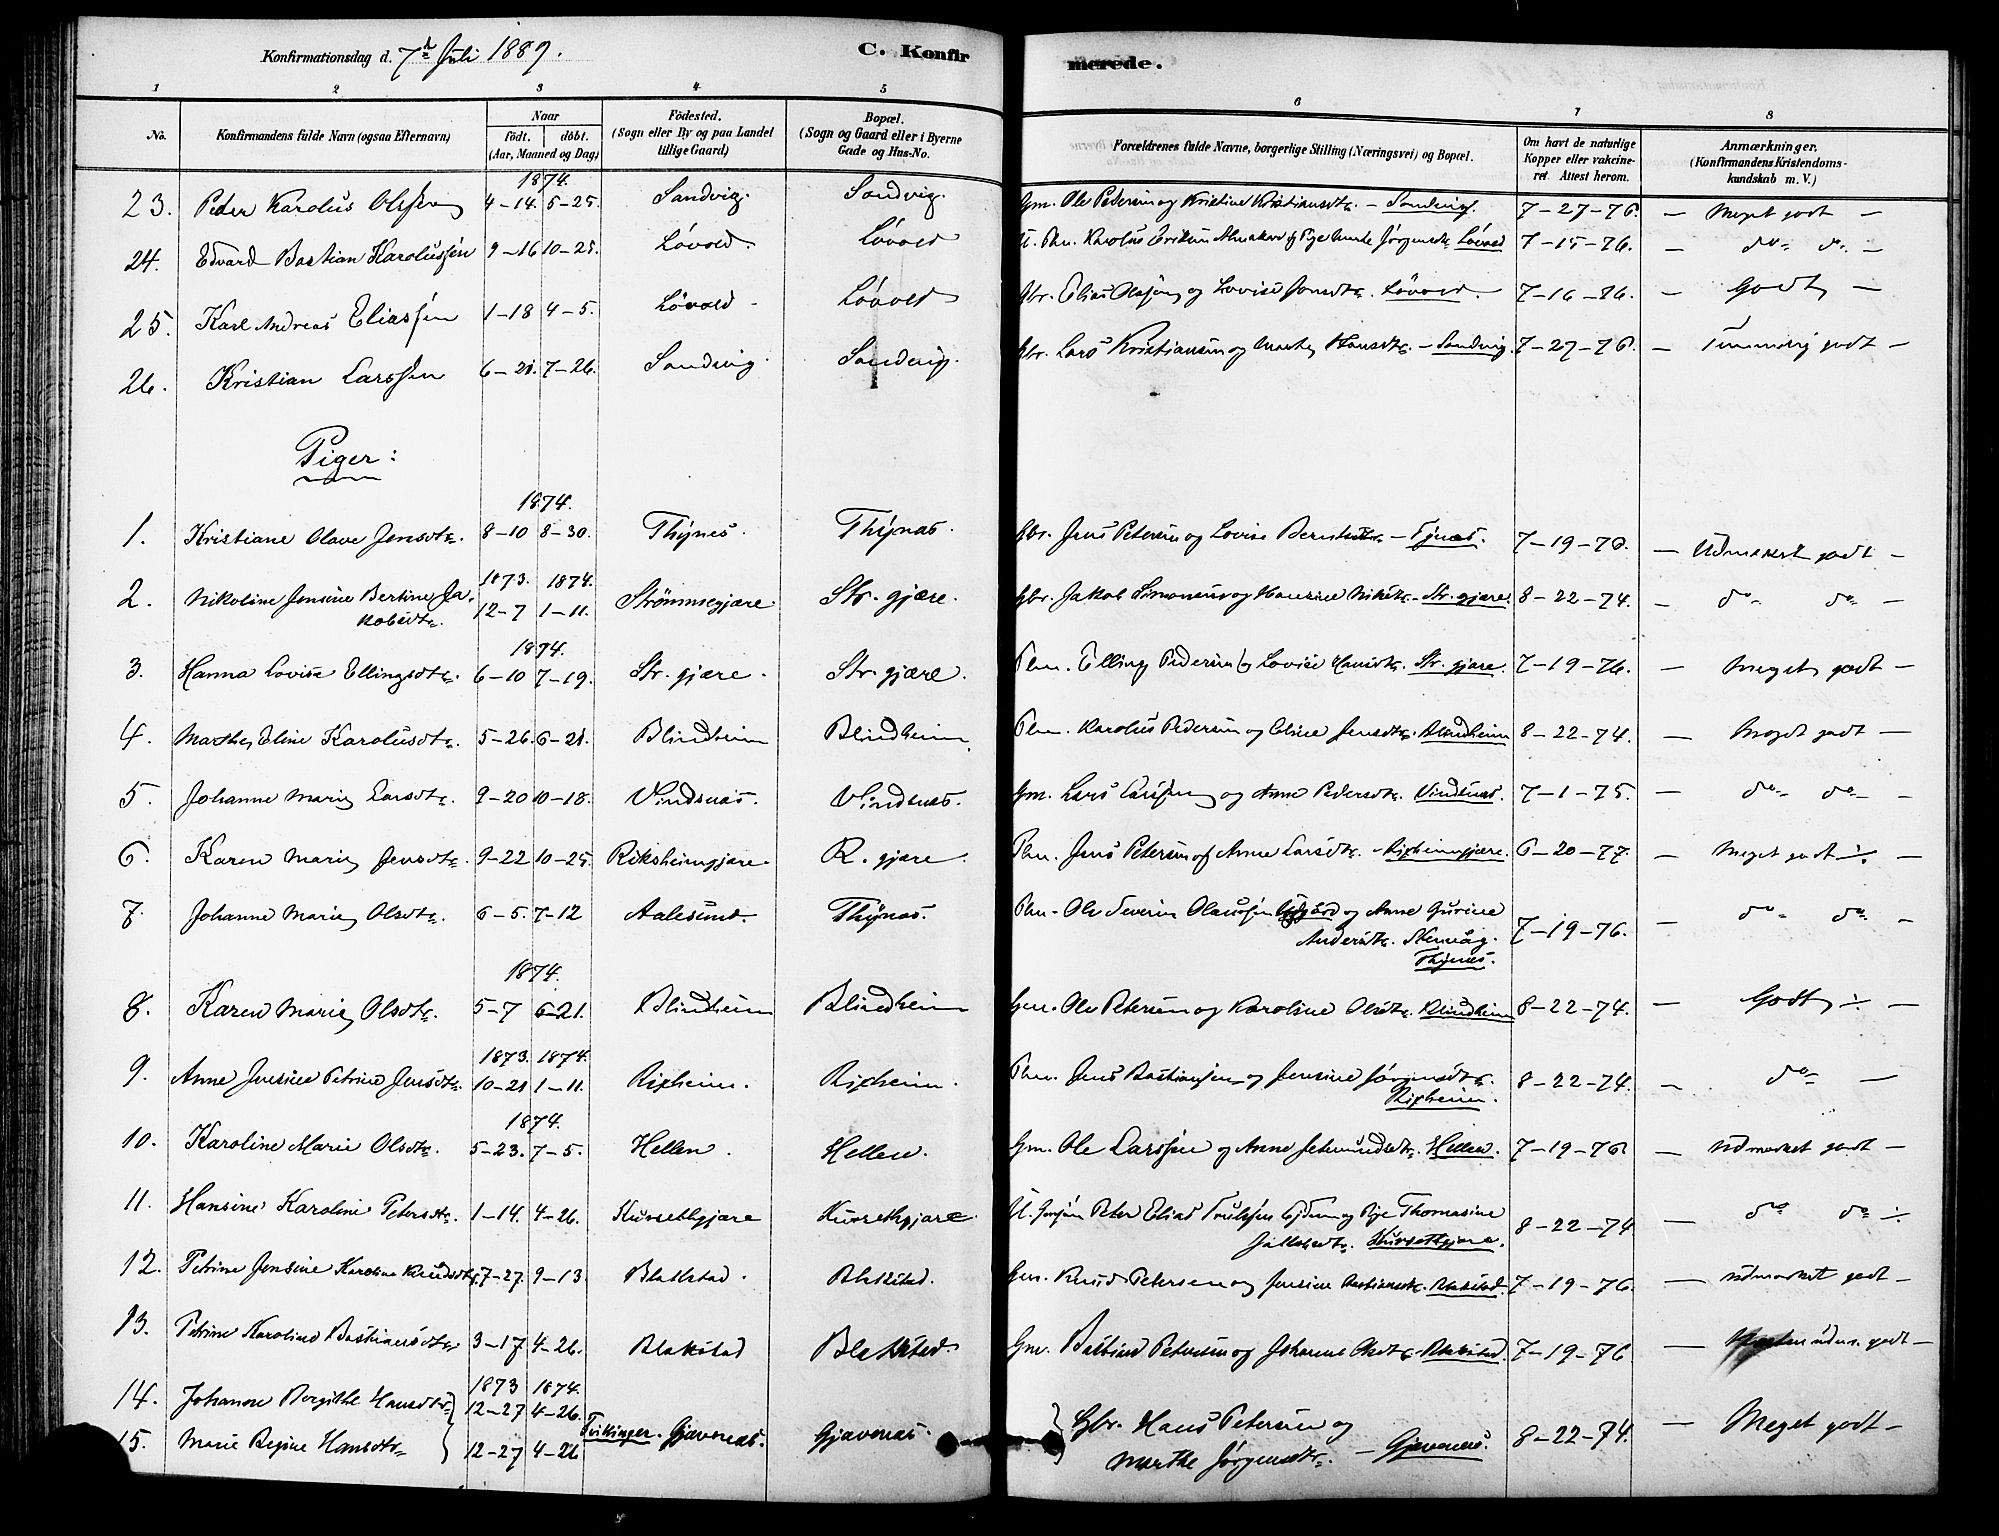 Konfirmationsdag d. 7d Juli 1889. C. Konfirmerede.
1 2 3 4 5 6 7 8
No. Konfirmandens fulde Navn (ogsaa Efternavn) Naar født. døbt. (Aar, Maaned og Dag) Fødested. (Sogn eller By og paa Landet tillige Gaard) Bopæl. (Sogn og Gaard eller i Byerne Gade og Hus-No. Forældrenes fulde Navne, borgerlige Stilling (Næringsvei) og Bopæl. Om havt de naturlige Kopper eller vakcineret. Attest herom. Anmærkninger. (Konfirmandens Kristendomskundskab m. V.)
1874.
23. Peder Karolus Olsen 4-14. 5-25. Sandvig. Sandvig. Gm. Ole Pedersen og Kristine Kristiansdtr. - Sandvig. 7-27-76. - Meget godt -
24. Edvard Bastian Karolussen 9-16 10-25. Løvold. Løvold Karolus Eriksen Jørgensdtr. Løvold 7-15-76. - do do -
25. Karl Andreas Eliassen 1-18 4-5. Løvold - Løvold Gbr. Elias Olsen og Lovise Jonsdtr. Løvold. 7-16-76. - Godt -
26. Kristian Larssen 6-21. 7-26. Sandvig. Sandvig. Gbr. Lars Kristiansen og Marthe Hansdtr. - Sandvig. 7-27-76. - Temmelig godt -
Piger:
1874.
1. Kristiane Olave Jensdtr. 8-10 8-30. Thynes. Thynæs. Gbr. Jens Petersen og Lovise Berntsdtr. - Tynæs. 7-19-76. - Udmærket godt -
1873. 1874.
2. Nikoline Jensine Bertine Jakobsdtr. 12-7 1-11. Strømmegjære Str. gjære. Gbr. Jakob Simonsen og Hansine Nilsdtr. - Str. gjære. 8-22-74. - do do -
1874.
3. Hanna Lovise Ellingsdtr. 6-10 7-19. Str. gjære. Str. gjære. Pm. Elling Pedersen og Lovise Hansdtr. Str. gjære. 7-19-76. - Meget godt -
4. Marthe Eline Karolusdtr. 5-26. 6-21. Blindheim Blindheim Pm. Karolus Pedersen og Eline Jensdtr. Blindheim 8-22-74. - Meget godt -
5. Johanne Marie Larsdtr. 9-20 10-18. Vindsnæs. Vindsnæs. Gm. Lars Larssen og Anne Pedersdtr. Vindsnæs. 7-1-75. - do do -
6. Karen Marie Jensdtr. 9-22 10-25. Riksheimgjære. R. gjære. Pm. Jens Petersen og Anne Larsdtr. - Rixheimgjære. 6-20-77. - Meget godt ÷ -
7. Johanne Marie Olsdtr. 6-5. 7-12 Aalesund. Thynæs. Pm. Ole Severin Olaussen og Anne Gurine
Andersdtr. Thynæs. 7-19-76. - do do -
1874.
8. Karen Marie Olsdtr. 5-7 6-21. Blindheim Blindheim Gm. Ole Petersen og Karoline Olsdtr. Blindheim 8-22-74. - Godt ÷ -
1873. 1874.
9. Anne Jensine Petrine Jensdtr. 10-21 1-11. Rixheim. Rixheim. Pm. Jens Bastiansen og Jensine Jørgensdtr. Rixheim. 8-22-74. - do -
1874.
10. Karoline Marie Olsdtr. 5-23. 7-5. Hellen. Hellen. Gm. Ole Larssen og Anne Hellen. 7-19-76 - Udmærket godt -
11. Hansine Karoline Petersdtr. 1-14. 4-26. Kursethgjære Kursethgjære. Peter Elias og Pige Thomasine
Kursethgjære. 8-22-74 - do do ÷
12. Petrine Jensine Karoline Knudsdtr. 7-27. 9-13. Blakstad. Blakstad. Gm. Knud Petersen og Jensine Bastiansdtr. Blakstad. 7-19-76. - Udmærket godt -
13. Petrine Karoline Bastiansdtr 3-17 4-26. Blakstad Blakstad Gm. Bastian Petersen og Johanne Olsdtr. Blakstad. 7-19-76 - Næsten udm. godt -
1873 1874.
14. Johanne Bergithe Hansdtr 12-27 4-26. Tvillinger. Gjævenæs. Gjævenæs. Gbr. Hans Petersen og
15. Marie Regine Hansdtr 12-27 4-26 Marthe Jørgensdtr. - Gjævenæs. 8-22-74. - Meget godt -